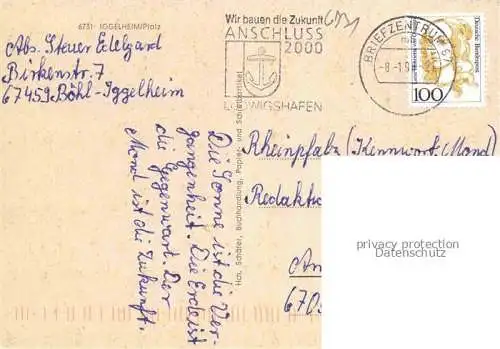 6731 IGGELHEIM/Pfalz
Abs. Steuer Edelgard
Birkenstr. 7
67459 Böhl-Iggelheim
Wir bauen die Zukunft
ANSCHLUSS
2000
LUDWIGSHAFEN
BRIEFZENTRUM 67
-8-1.9
Deutsche Bundespost
100
Die Sonne ist die Ver-
gangenheit. Die Erde ist
die Gegenwart. Der
Mond ist die Zukunft.
Hch. Schäfer, Buchhandlung, Papier- und Schreibwaren
Rheinpfalz (Kennwort: Mond)
Redakt
Am
670
privacy protection
Datenschutz